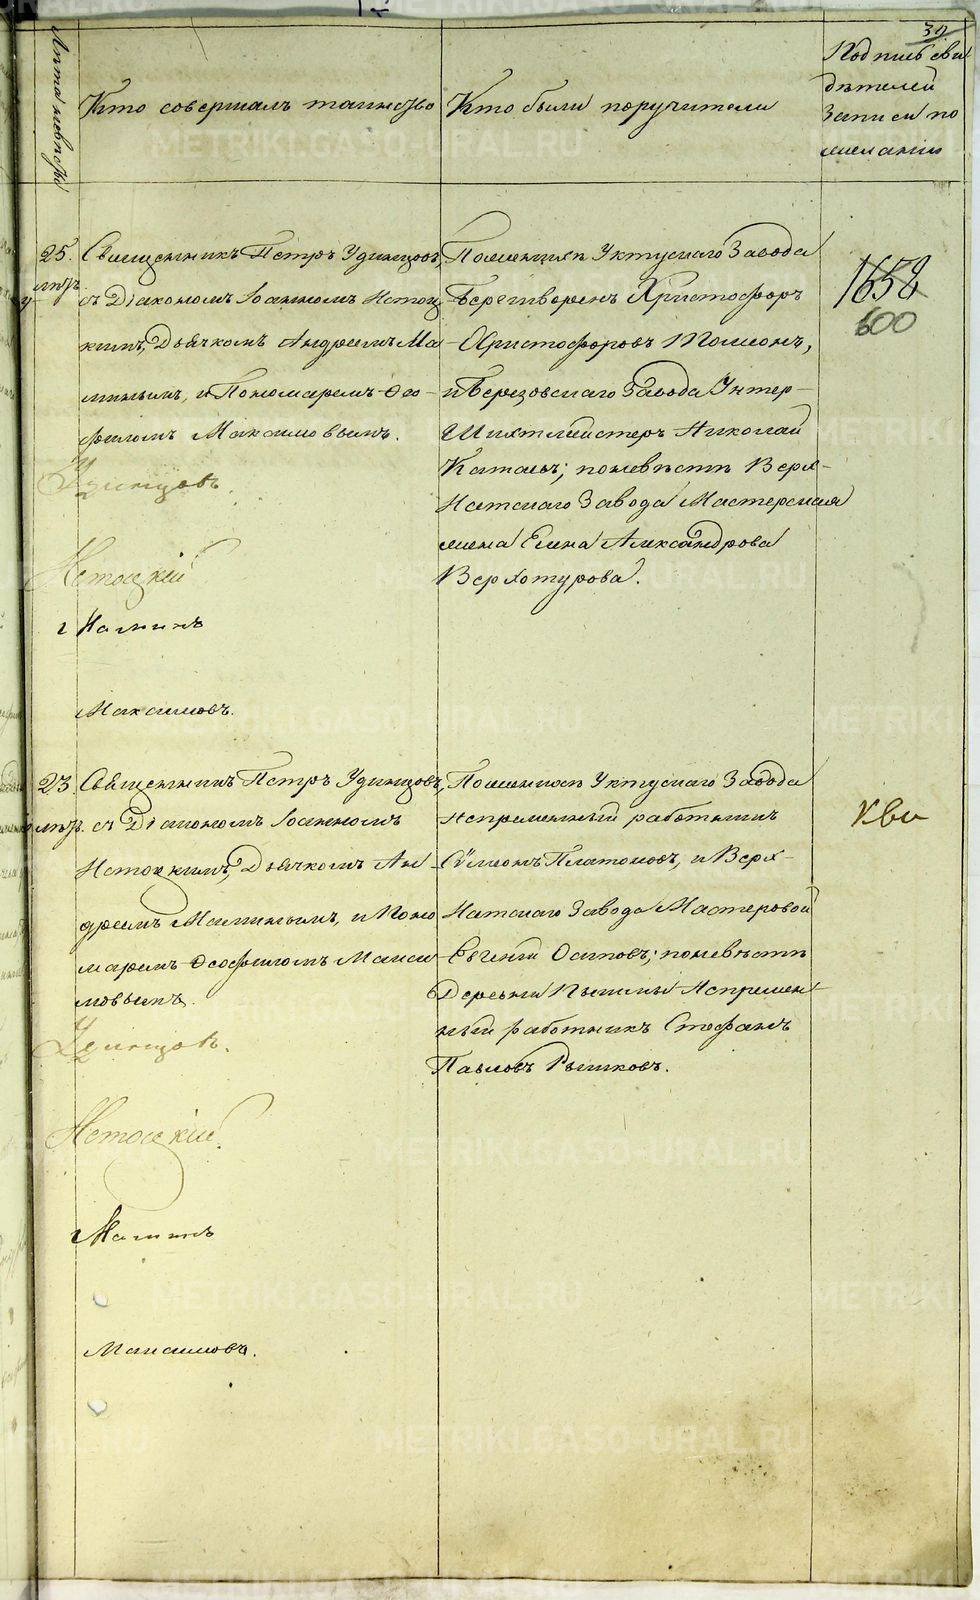 30
Лѣта невѣсты
Кто совершалъ таинство
Кто были поручители
Подпись сви
дѣтелей
записи по
желанію
25.
лѣтъ.
Священникъ Петръ Удинцовъ,
съ Діакономъ Іоанномъ Истоц
кимъ, Дьячкомъ Андреемъ Ма
минымъ, и Пономаремъ Ѳео-
филомъ Максимовымъ.
Удинцовъ.
Истоцкій
Маминъ
Максимовъ.
По женихѣ Уктускаго Завода
Берггешворенъ Христофоръ
Христофоровъ Томсонъ,
и Березовскаго Завода Унтер-
Шихтмейстеръ Николай
; по невѣстѣ Верх-
Исетскаго Завода Мастерская
жена Елена Александрова
Верхотурова.
1658
600
23.
лѣтъ.
Священникъ Петръ Удинцовъ,
съ Діакономъ Іоанномъ
Истоцкимъ, Дьячкомъ Ан-
дреемъ Маминымъ, и Поно
маремъ Ѳеофиломъ Макси
мовымъ.
Удинцовъ.
Истоцкій.
Маминъ
Максимовъ.
По женихѣ Уктускаго Завода
Непремѣнный работникъ
Сѵмеонъ Платоновъ, и Верх-
Исетскаго Завода Мастеровой
Евгеній Осиповъ; по невѣстѣ
Деревни Пышмы Непремѣн
ный работникъ Стефанъ
Павловъ Рышковъ.
METRIKI.GASO-URAL.RU